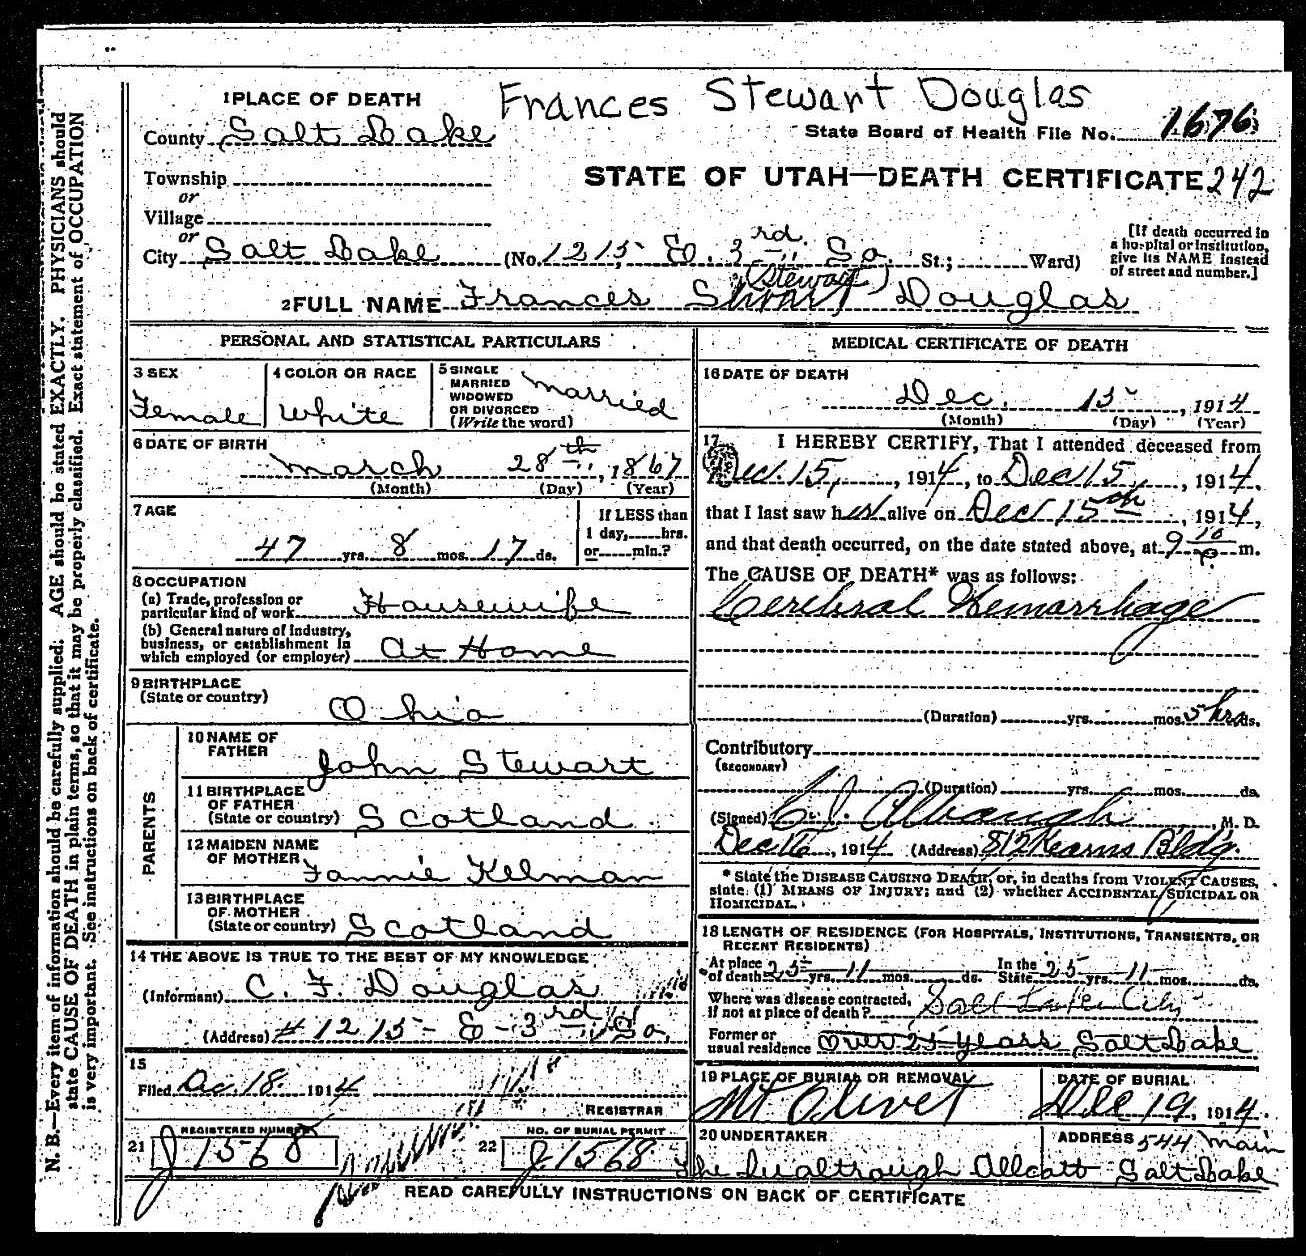 Frances Stewart Douglas
1 PLACE OF DEATH
County Salt Lake
State Board of Health File No. 1676
Township
or
STATE OF UTAH—DEATH CERTIFICATE 242
Village
or
City Salt Lake (No. 1215 E. 3rd So. St.; Ward)
[If death occurred in a hospital or institution, give its NAME instead of street and number.]
(Stewart)
2 FULL NAME Frances Douglas
PERSONAL AND STATISTICAL PARTICULARS
3 SEX
Female
4 COLOR OR RACE
White
5 SINGLE
MARRIED
WIDOWED
OR DIVORCED
(Write the word)
married
6 DATE OF BIRTH
March 28th, 1867
(Month) (Day) (Year)
7 AGE
47 yrs. 8 mos. 17 ds.
If LESS than
1 day, hrs.
or min.?
8 OCCUPATION
(a) Trade, profession or
particular kind of work Housewife
(b) General nature of industry,
business, or establishment in
which employed (or employer) At Home
9 BIRTHPLACE
(State or country)
Ohio
PARENTS
10 NAME OF
FATHER
John Stewart
11 BIRTHPLACE
OF FATHER
(State or country) Scotland
12 MAIDEN NAME
OF MOTHER
Fannie Kelman
13 BIRTHPLACE
OF MOTHER
(State or country) Scotland
14 THE ABOVE IS TRUE TO THE BEST OF MY KNOWLEDGE
(Informant) C. F. Douglas
(Address) # 1215 - E - 3rd So.
15
Filed Dec. 18. 1914
REGISTRAR
21 REGISTERED NUMBER
J 1568
22 NO. OF BURIAL PERMIT
J 1568
MEDICAL CERTIFICATE OF DEATH
16 DATE OF DEATH
Dec. 15, 1914
(Month) (Day) (Year)
17 I HEREBY CERTIFY, That I attended deceased from
Dec. 15, 1914, to Dec 15, 1914,
that I last saw her alive on Dec 15th, 1914,
and that death occurred, on the date stated above, at 9 10 P. m.
The CAUSE OF DEATH* was as follows:
Cerebral Hemorrhage
(Duration) yrs. mos. 5 hrs ds.
Contributory
(SECONDARY)
(Duration) yrs. mos. ds.
(Signed) C. J. Albaugh, M. D.
Dec 16, 1914 (Address) 812 Kearns Bldg.
* State the DISEASE CAUSING DEATH, or, in deaths from VIOLENT CAUSES,
state (1) MEANS OF INJURY; and (2) whether ACCIDENTAL, SUICIDAL OR
HOMICIDAL.
18 LENGTH OF RESIDENCE (FOR HOSPITALS, INSTITUTIONS, TRANSIENTS, OR
RECENT RESIDENTS)
At place
of death 25 yrs. 11 mos. ds. In the
State 25 yrs. 11 mos. ds.
Where was disease contracted,
if not at place of death? Salt Lake City
Former or
usual residence over 25 years Salt Lake
19 PLACE OF BURIAL OR REMOVAL
Mt Olivet
DATE OF BURIAL
Dec 19, 1914.
20 UNDERTAKER
ADDRESS 544 Main
Salt Lake
READ CAREFULLY INSTRUCTIONS ON BACK OF CERTIFICATE
N. B.—Every item of information should be carefully supplied. AGE should be stated EXACTLY. PHYSICIANS should
state CAUSE OF DEATH in plain terms, so that it may be properly classified. Exact statement of OCCUPATION
is very important. See instructions on back of certificate.